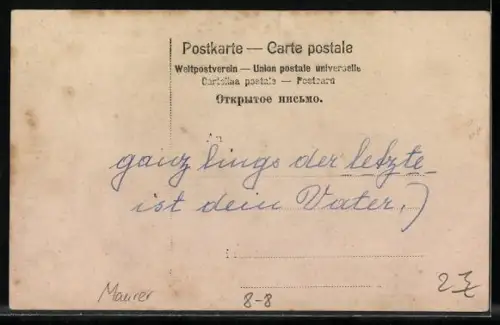 Postkarte — Carte postale
Weltpostverein — Union postale universelle
Cartolina postale — Postcard
Открытое письмо.
ganz lings der letzte
ist dein Vater.)
Maurer
8-8